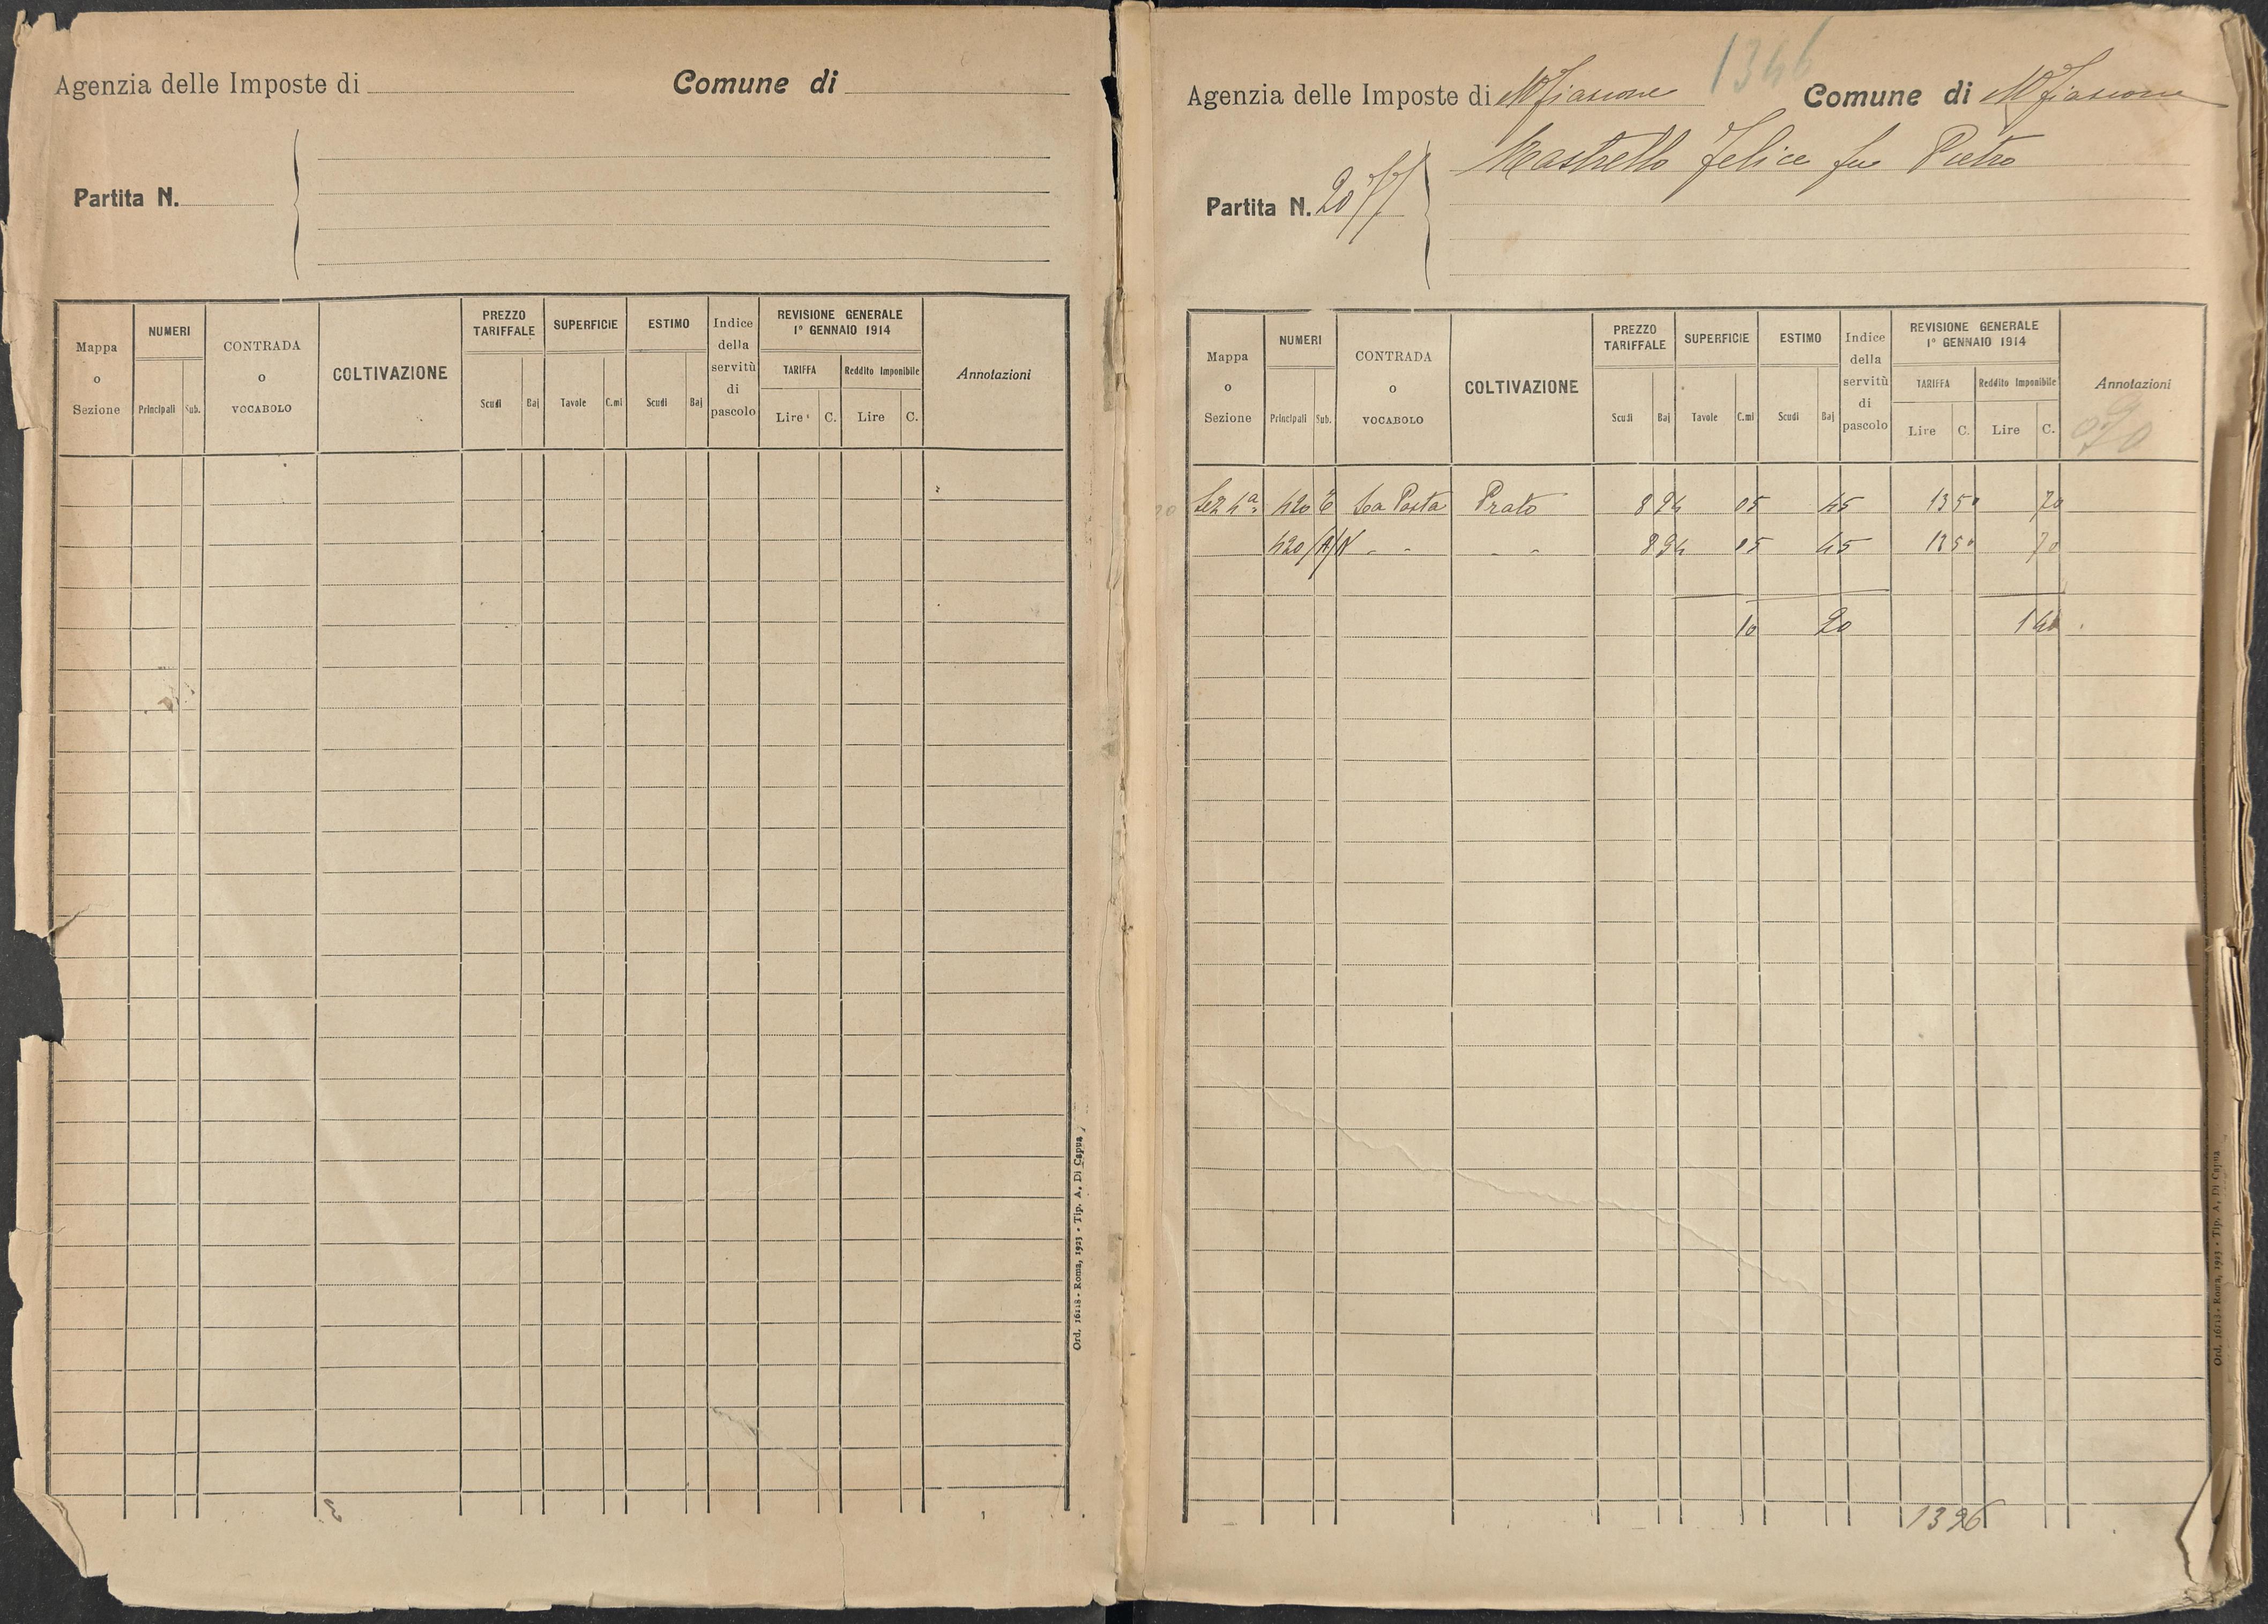 Agenzia delle Imposte di
Comune di
Partita N.
Mappa o Sezione
NUMERI
Principali Sub.
CONTRADA o VOCABOLO
COLTIVAZIONE
PREZZO TARIFFALE
Scudi Baj
SUPERFICIE
Tavole C.mi
ESTIMO
Scudi Baj
Indice della servitù di pascolo
REVISIONE GENERALE
1° GENNAIO 1914
TARIFFA Reddito Imponibile
Lire C. Lire C.
Annotazioni
Ord. 16118 - Roma, 1923 - Tip. A. Di Capua
1346
Agenzia delle Imposte di Mfiascone Comune di Mfiascone
Mastrello Felice fu Pietro
Partita N. 2077
Mappa o Sezione
NUMERI
Principali Sub.
CONTRADA o VOCABOLO
COLTIVAZIONE
PREZZO TARIFFALE
Scudi Baj
SUPERFICIE
Tavole C.mi
ESTIMO
Scudi Baj
Indice della servitù di pascolo
REVISIONE GENERALE
1° GENNAIO 1914
TARIFFA Reddito Imponibile
Lire C. Lire C.
Annotazioni
Sez 4a 420 La Posta Prato 8 94 05 45 13 50 70
420 - - - - 8 94 05 45 13 50 70
10 90 1 40
1396
Ord. 16118 - Roma, 1923 - Tip. A. Di Capua